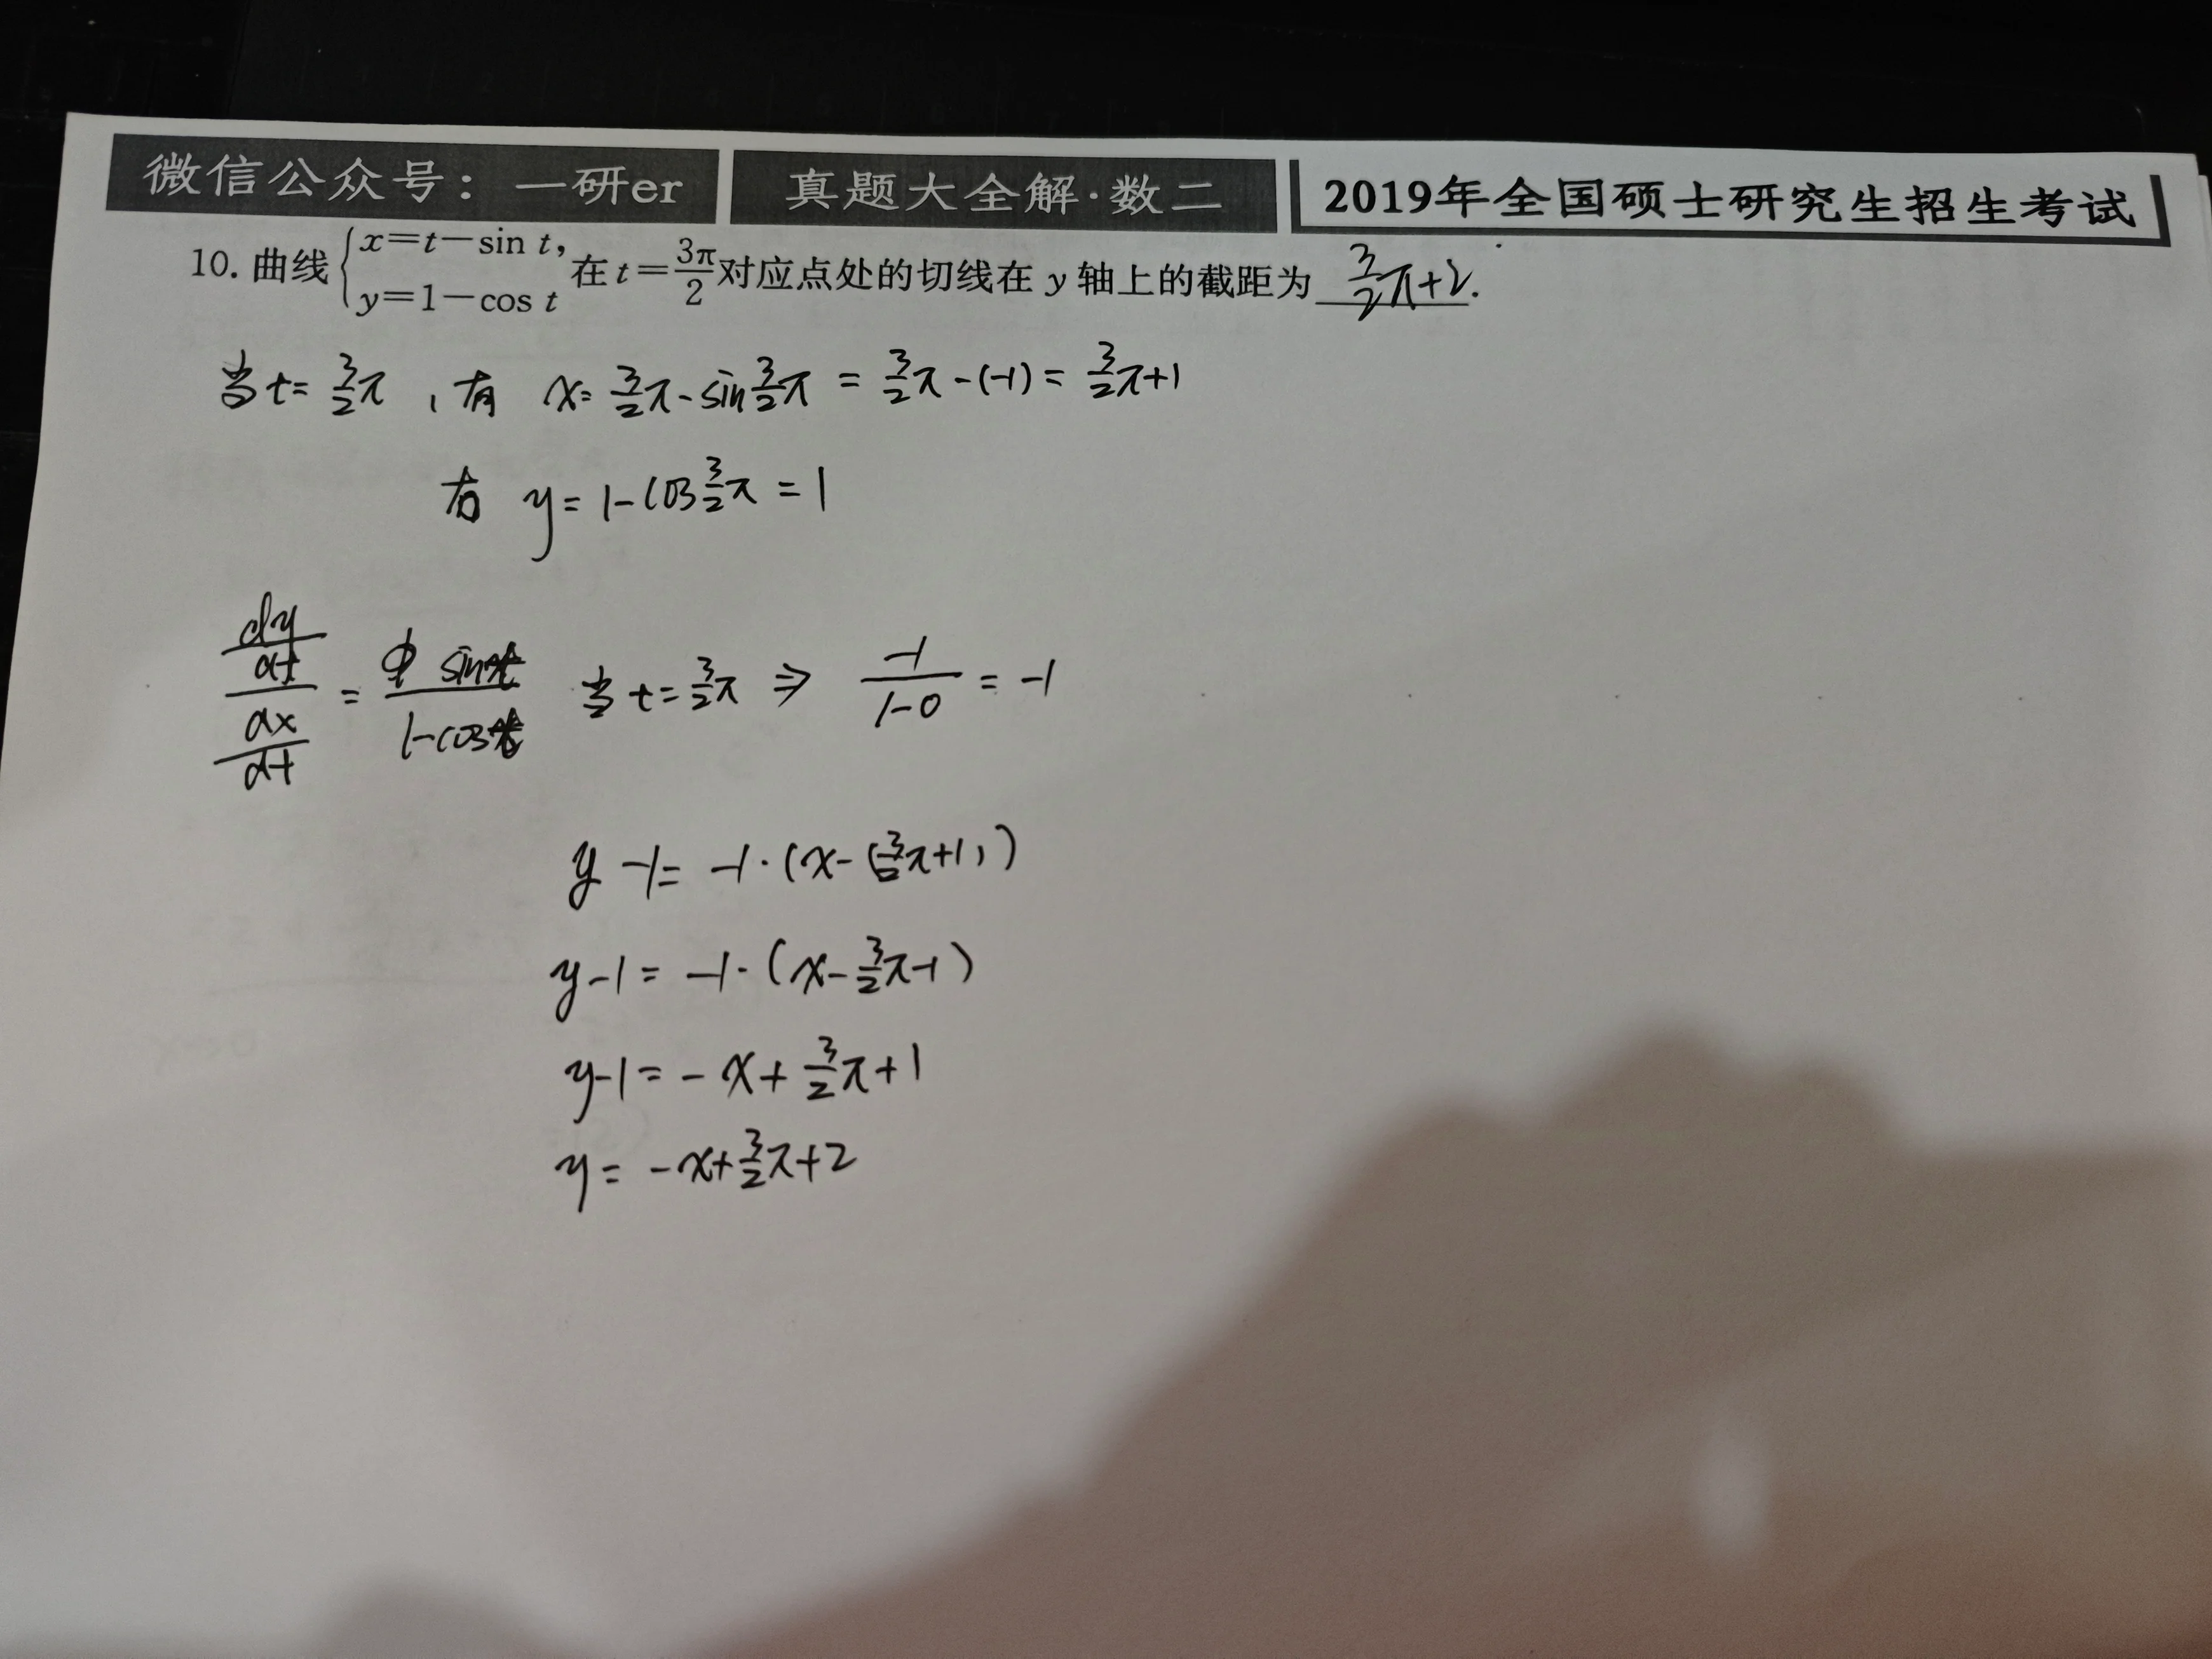 微信公众号：一研er 真题大全解·数二 2019年全国硕士研究生招生考试
10. 曲线 { x=t−sin t, y=1−cos t 在 t=3π/2 对应点处的切线在 y 轴上的截距为 3/2π+2.
当 t= 3/2π , 有 x= 3/2π-sin3/2π = 3/2π-(-1) = 3/2π+1
有 y= 1-cos3/2π = 1
(dy/dt)/(dx/dt) = sint/(1-cost) 当 t=3/2π ⇒ -1/(1-0) = -1
y-1= -1·(x-(3/2π+1))
y-1= -1·(x-3/2π-1)
y-1= -x+3/2π+1
y= -x+3/2π+2